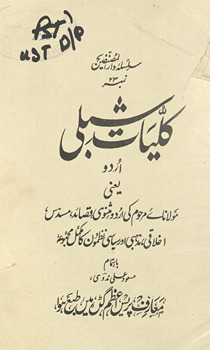 سلسلہ دار المصنفین
نمبر ۲۳
کلیات شبلی
اردو
یعنی
مولانائے مرحوم کی اردو مثنوی، قصائد، مسدس
اخلاقی، مذہبی اور سیاسی نظموں کا مکمل مجموعہ
باہتمام
مسعود علی ندوی،
معارف پریس اعظم گڑھ میں طبع ہوا